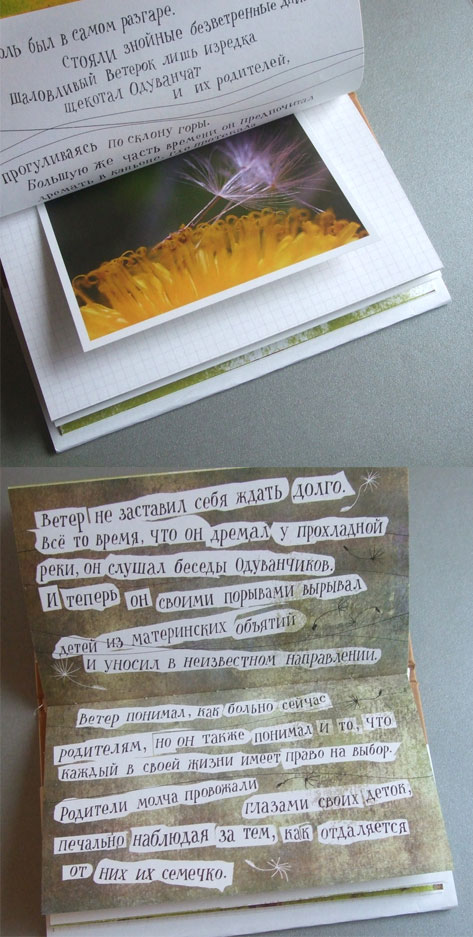 был в самом разгаре.
Стояли знойные безветренные
Шаловливый Ветерок лишь изредка
щекотал Одуванчат
и их родителей,
прогуливаясь по склону горы.
Большую же часть времени он предпочитал
дремать в каньоне, где протекала
Ветер не заставил себя ждать долго.
Всё то время, что он дремал у прохладной
реки, он слушал беседы Одуванчиков.
И теперь он своими порывами вырывал
детей из материнских объятий
и уносил в неизвестном направлении.
Ветер понимал, как больно сейчас
родителям, но он также понимал и то, что
каждый в своей жизни имеет право на выбор.
Родители молча провожали
глазами своих деток,
печально наблюдая за тем, как отдаляется
от них их семечко.